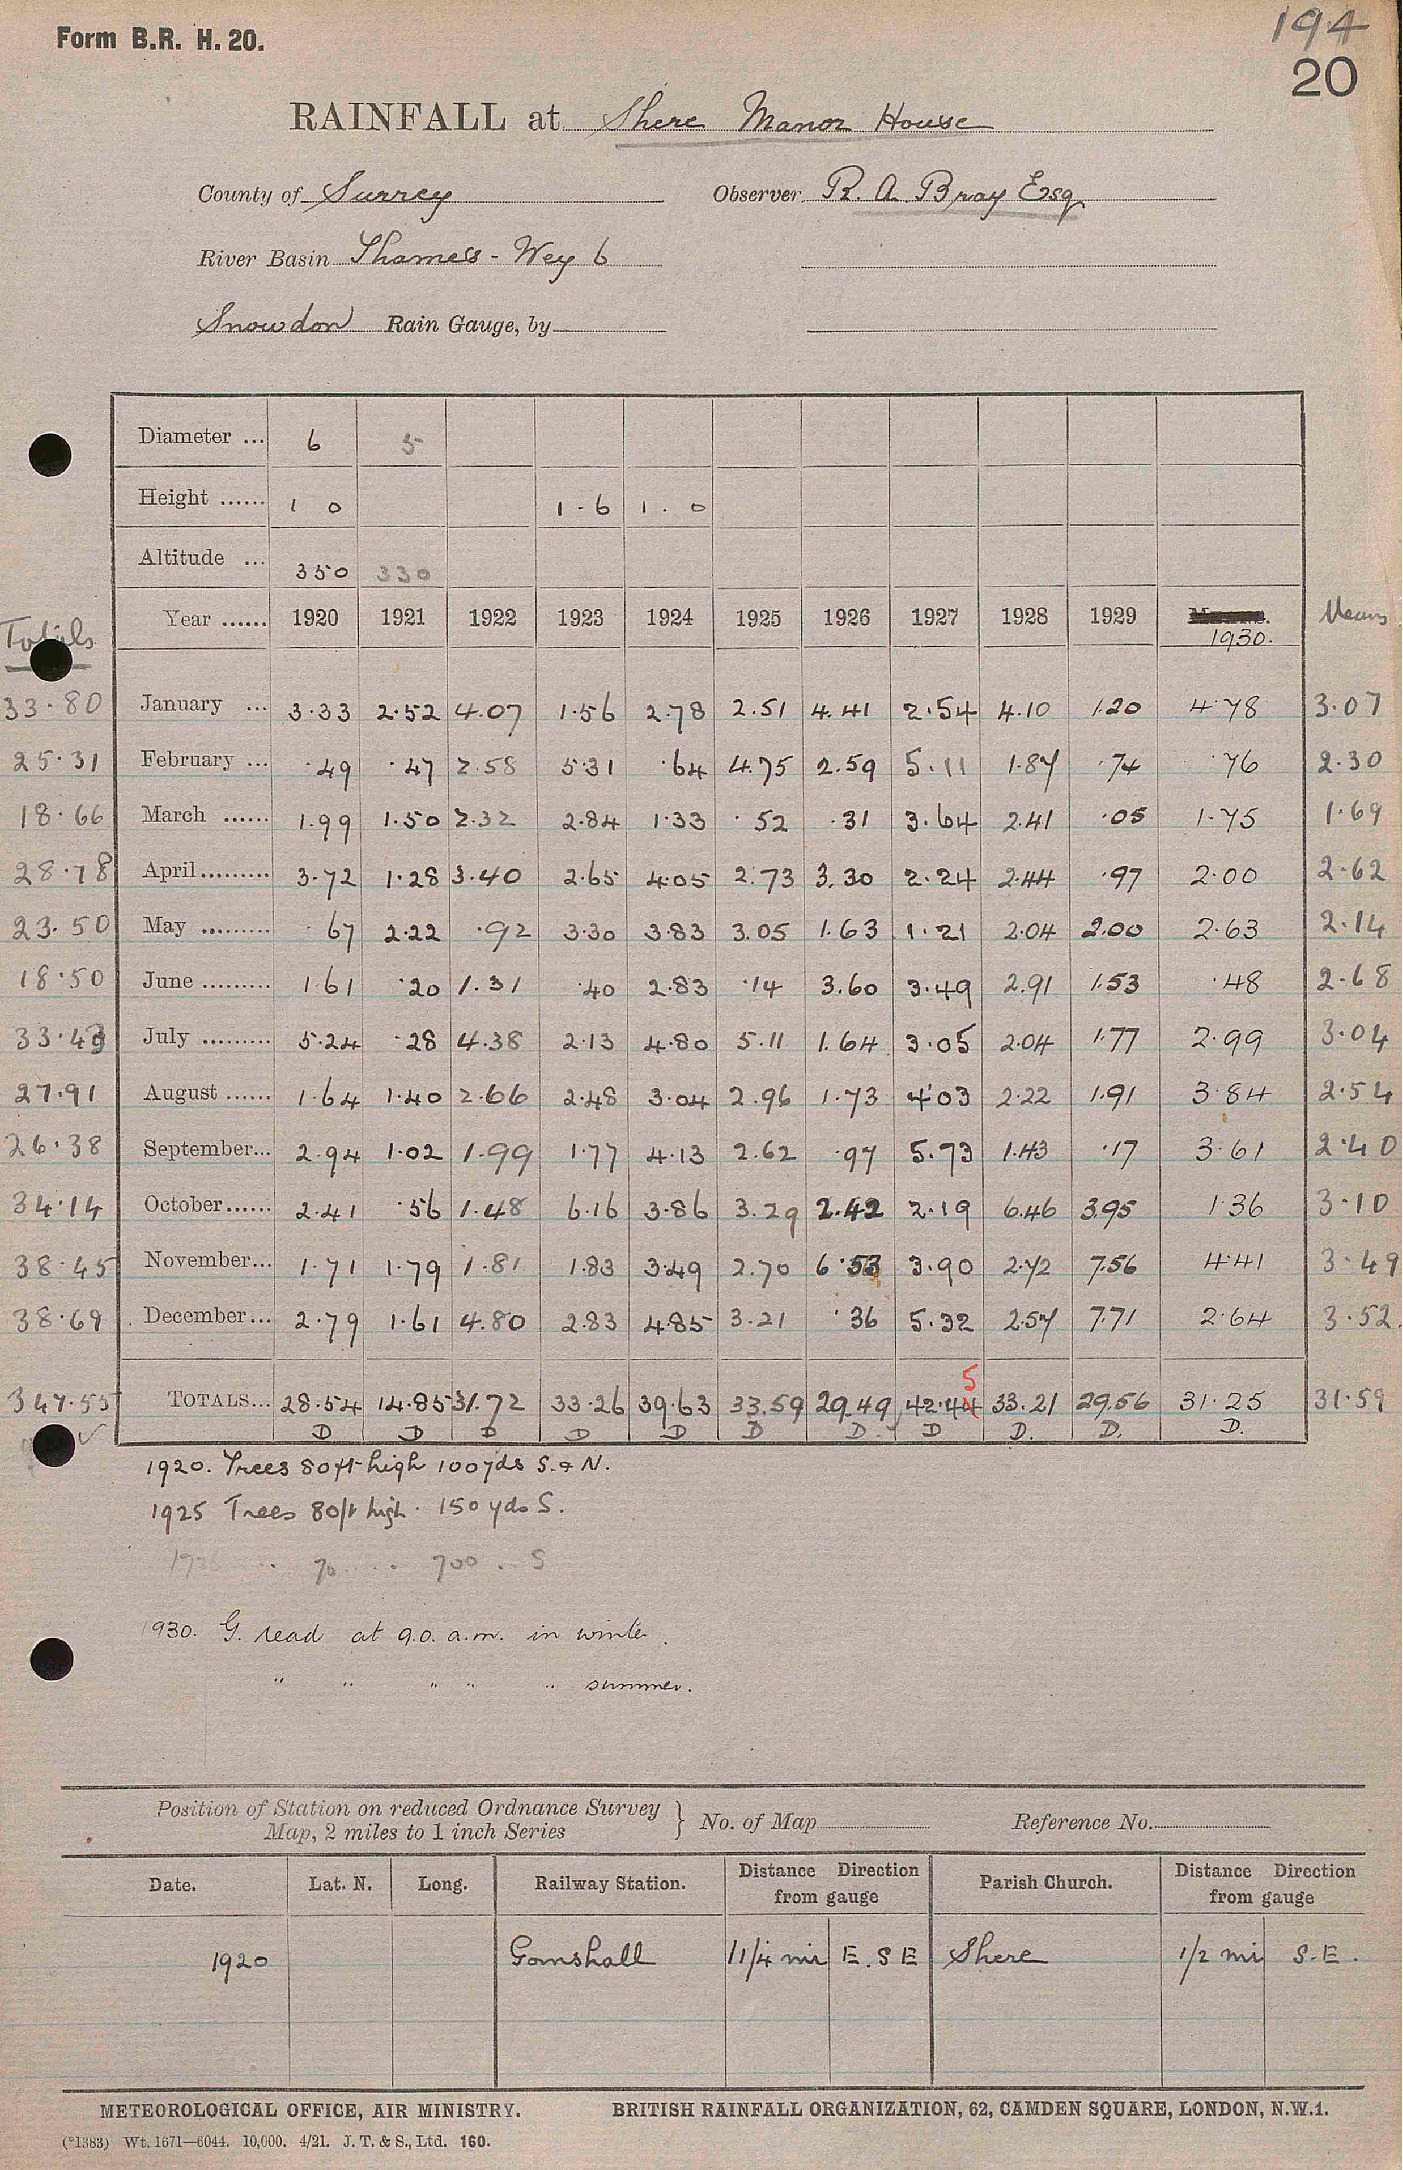 Form B.R. H. 20.
194
20
RAINFALL at Shere Manor House
County of Surrey Observer R. A. Bray Esq
River Basin Thames - Wey 6
Snowdon Rain Gauge, by
Diameter ... 6 5
Height ...... 1 0 1 - 6 1 . 0
Altitude ... 350 330
Totals Year ...... 1920 1921 1922 1923 1924 1925 1926 1927 1928 1929 1930. Means
33.80 January ... 3.33 2.52 4.07 1.56 2.78 2.51 4.41 2.54 4.10 1.20 4.78 3.07
25.31 February ... .49 .47 2.58 5.31 .64 4.75 2.59 5.11 1.87 .74 .76 2.30
18.66 March ...... 1.99 1.50 2.32 2.84 1.33 .52 .31 3.64 2.41 .05 1.75 1.69
28.78 April......... 3.72 1.28 3.40 2.65 4.05 2.73 3.30 2.24 2.44 .97 2.00 2.62
23.50 May ......... .67 2.22 .92 3.30 3.83 3.05 1.63 1.21 2.04 2.00 2.63 2.14
18.50 June ......... 1.61 .20 1.31 .40 2.83 .14 3.60 3.49 2.91 1.53 .48 2.68
33.43 July ......... 5.24 .28 4.38 2.13 4.80 5.11 1.64 3.05 2.04 1.77 2.99 3.04
27.91 August ...... 1.64 1.40 2.66 2.48 3.04 2.96 1.73 4.03 2.22 1.91 3.84 2.54
26.38 September... 2.94 1.02 1.99 1.77 4.13 2.62 .97 5.73 1.43 .17 3.61 2.40
34.14 October...... 2.41 .56 1.48 6.16 3.86 3.29 2.42 2.19 6.46 3.95 1.36 3.10
38.45 November... 1.71 1.79 1.81 1.83 3.49 2.70 6.53 3.90 2.72 7.56 4.41 3.49
38.69 December... 2.79 1.61 4.80 2.83 4.85 3.21 .36 5.32 2.57 7.71 2.64 3.52
5
347.55 TOTALS... 28.54 14.85 31.72 33.26 39.63 33.59 29.49 42.44 33.21 29.56 31.25 31.59
D D D D D D D. D D. D. D.
1920. Trees 80ft high 100yds S. & N.
1925 Trees 80ft high . 150 yds S.
70 700 S
1930. G. read at 9.0. a.m. in winter.
" " " " " summer.
Position of Station on reduced Ordnance Survey } No. of Map Reference No.
Map, 2 miles to 1 inch Series
Date. Lat. N. Long. Railway Station. Distance Direction from gauge Parish Church. Distance Direction from gauge
1920 Gomshall 1 1/4 mi E. S E Shere 1/2 mi S.E.
METEOROLOGICAL OFFICE, AIR MINISTRY. BRITISH RAINFALL ORGANIZATION, 62, CAMDEN SQUARE, LONDON, N.W.1.
(*1383) Wt. 1671—6044. 10,000. 4/21. J. T. & S., Ltd. 160.